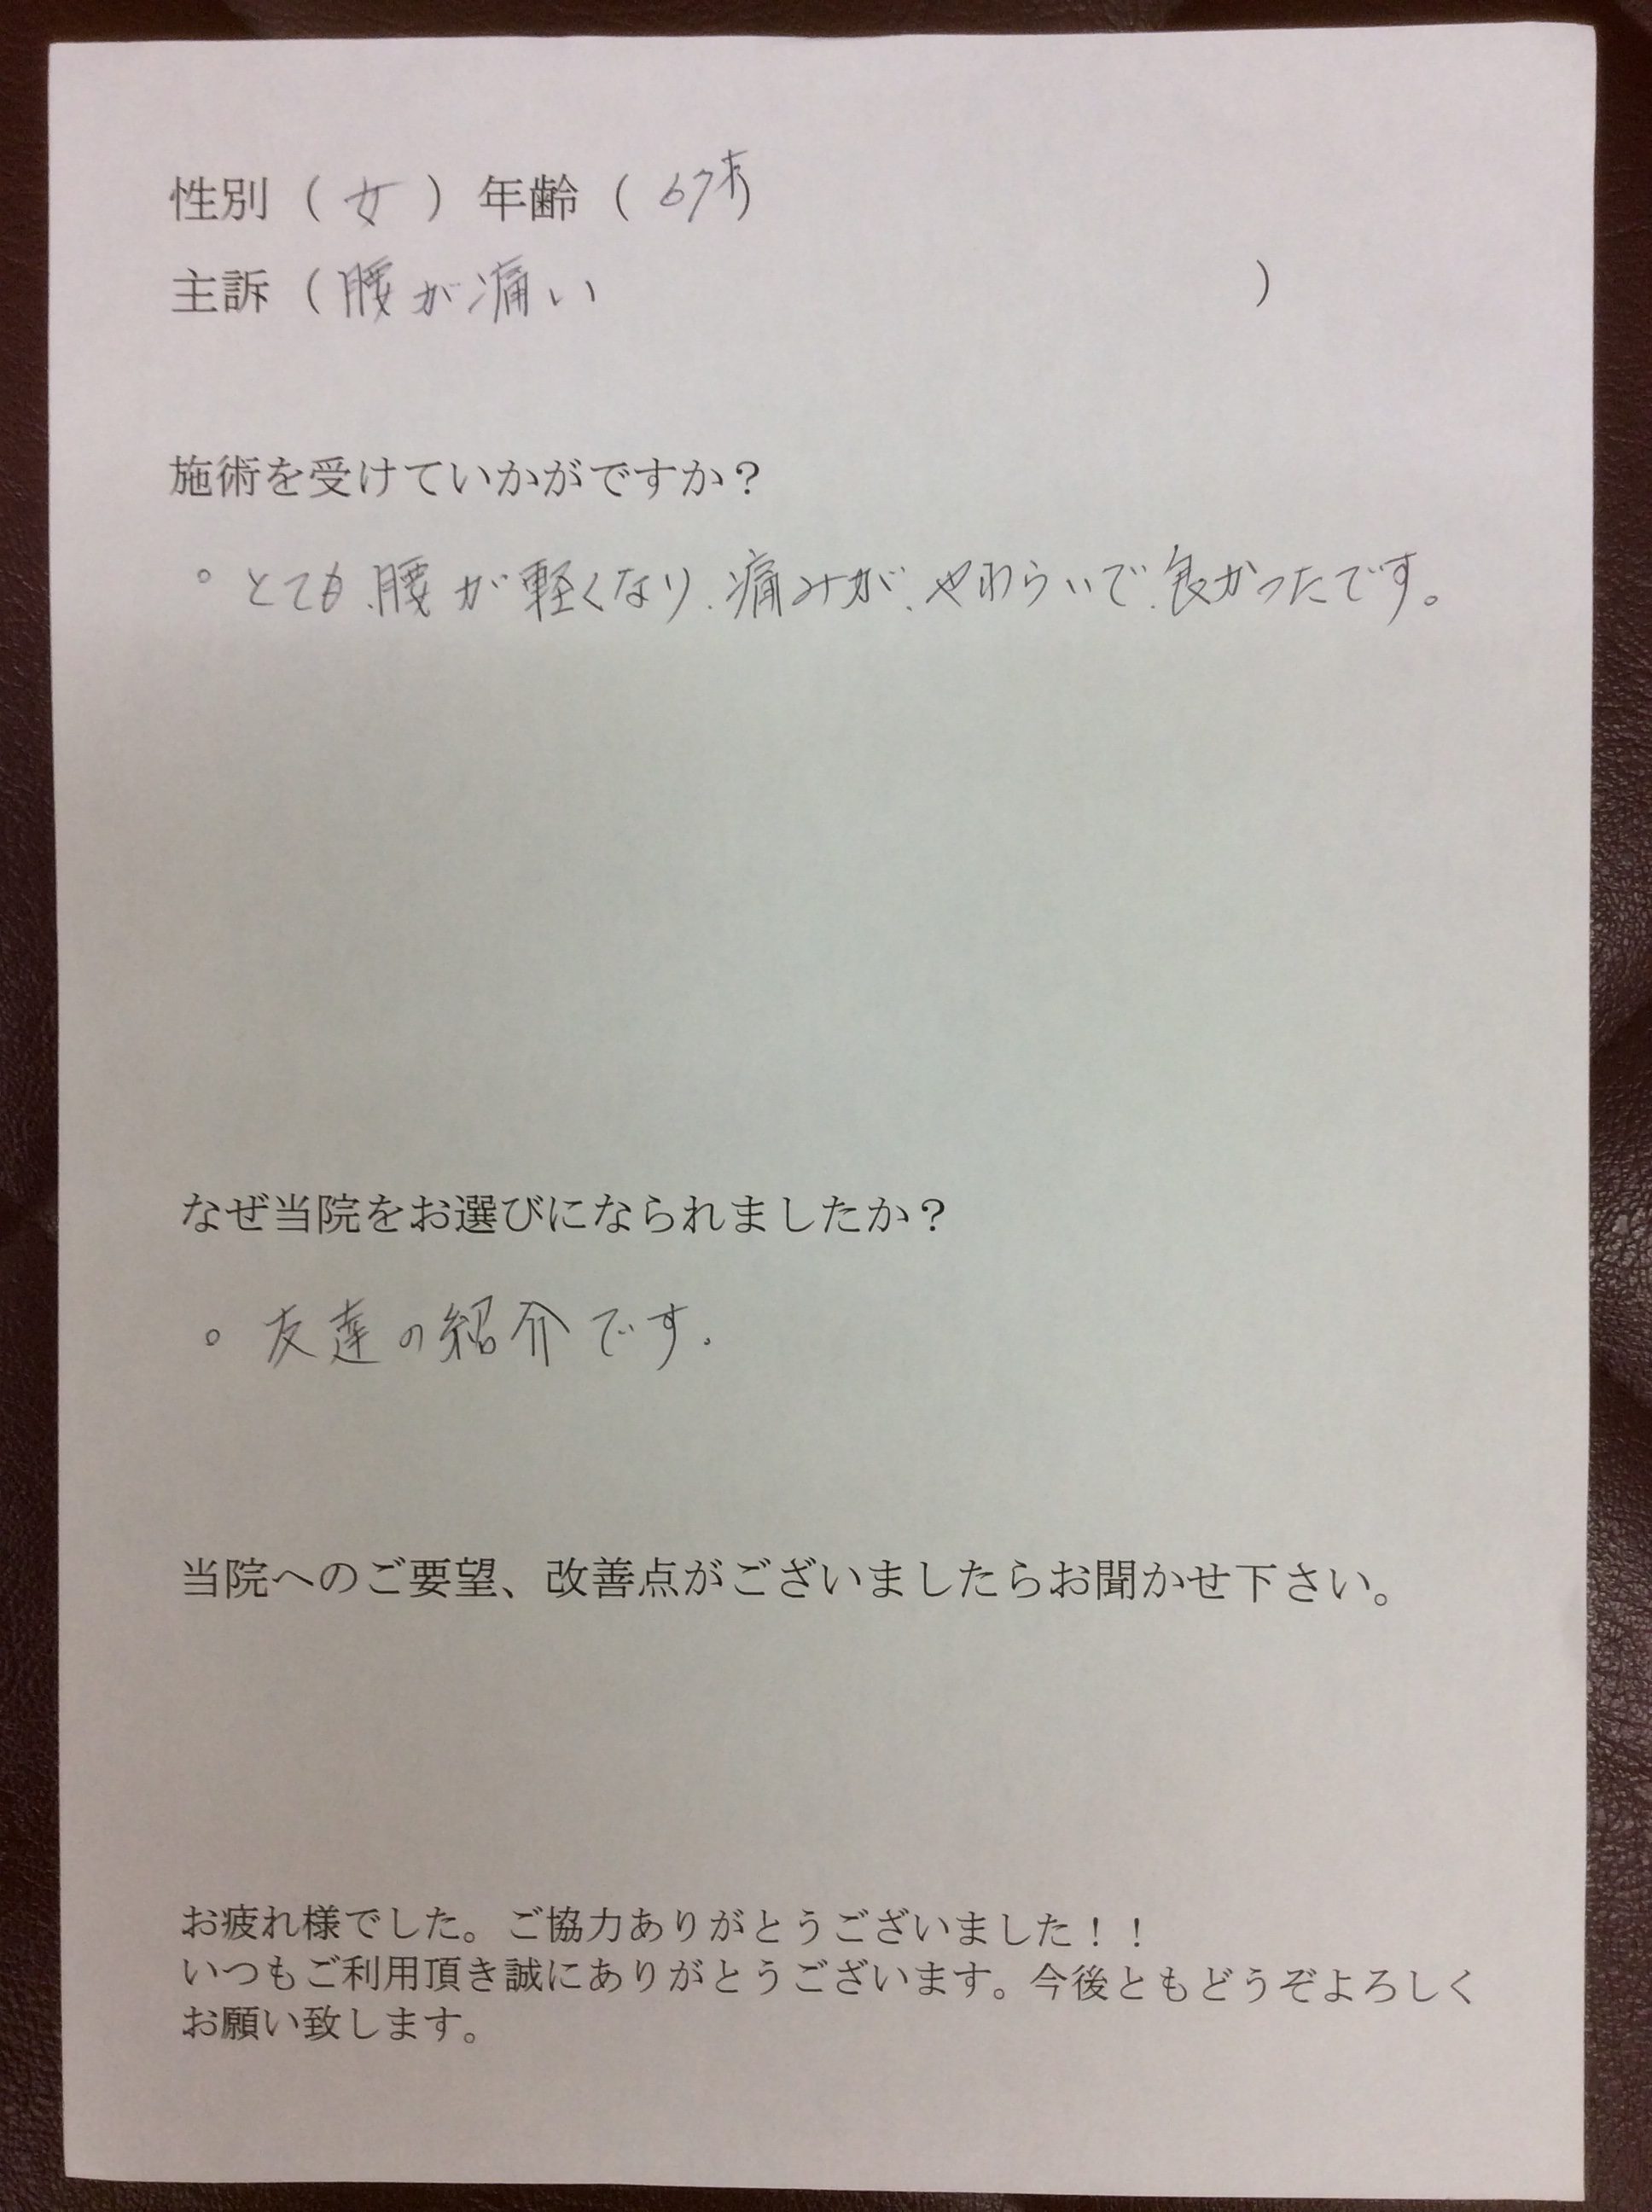 性別（女）年齢（67才）
主訴（腰が痛い）
施術を受けていかがですか？
。とても、腰が軽くなり、痛みが、やわらいで、良かったです。
なぜ当院をお選びになられましたか？
。友達の紹介です。
当院へのご要望、改善点がございましたらお聞かせ下さい。
お疲れ様でした。ご協力ありがとうございました！！
いつもご利用頂き誠にありがとうございます。今後ともどうぞよろしく
お願い致します。